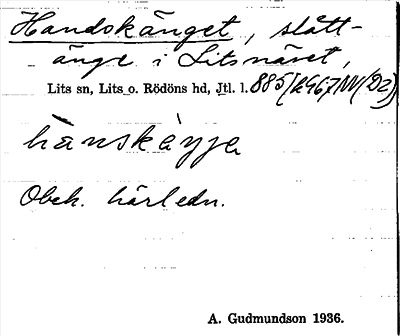 Handskänget, slått-
änge i Litsnäset,
Lits sn, Lits o. Rödöns hd, Jtl. l. 885/2967NV(D2)
hänskäŋŋe
Obek. härledn.
A. Gudmundson 1936.